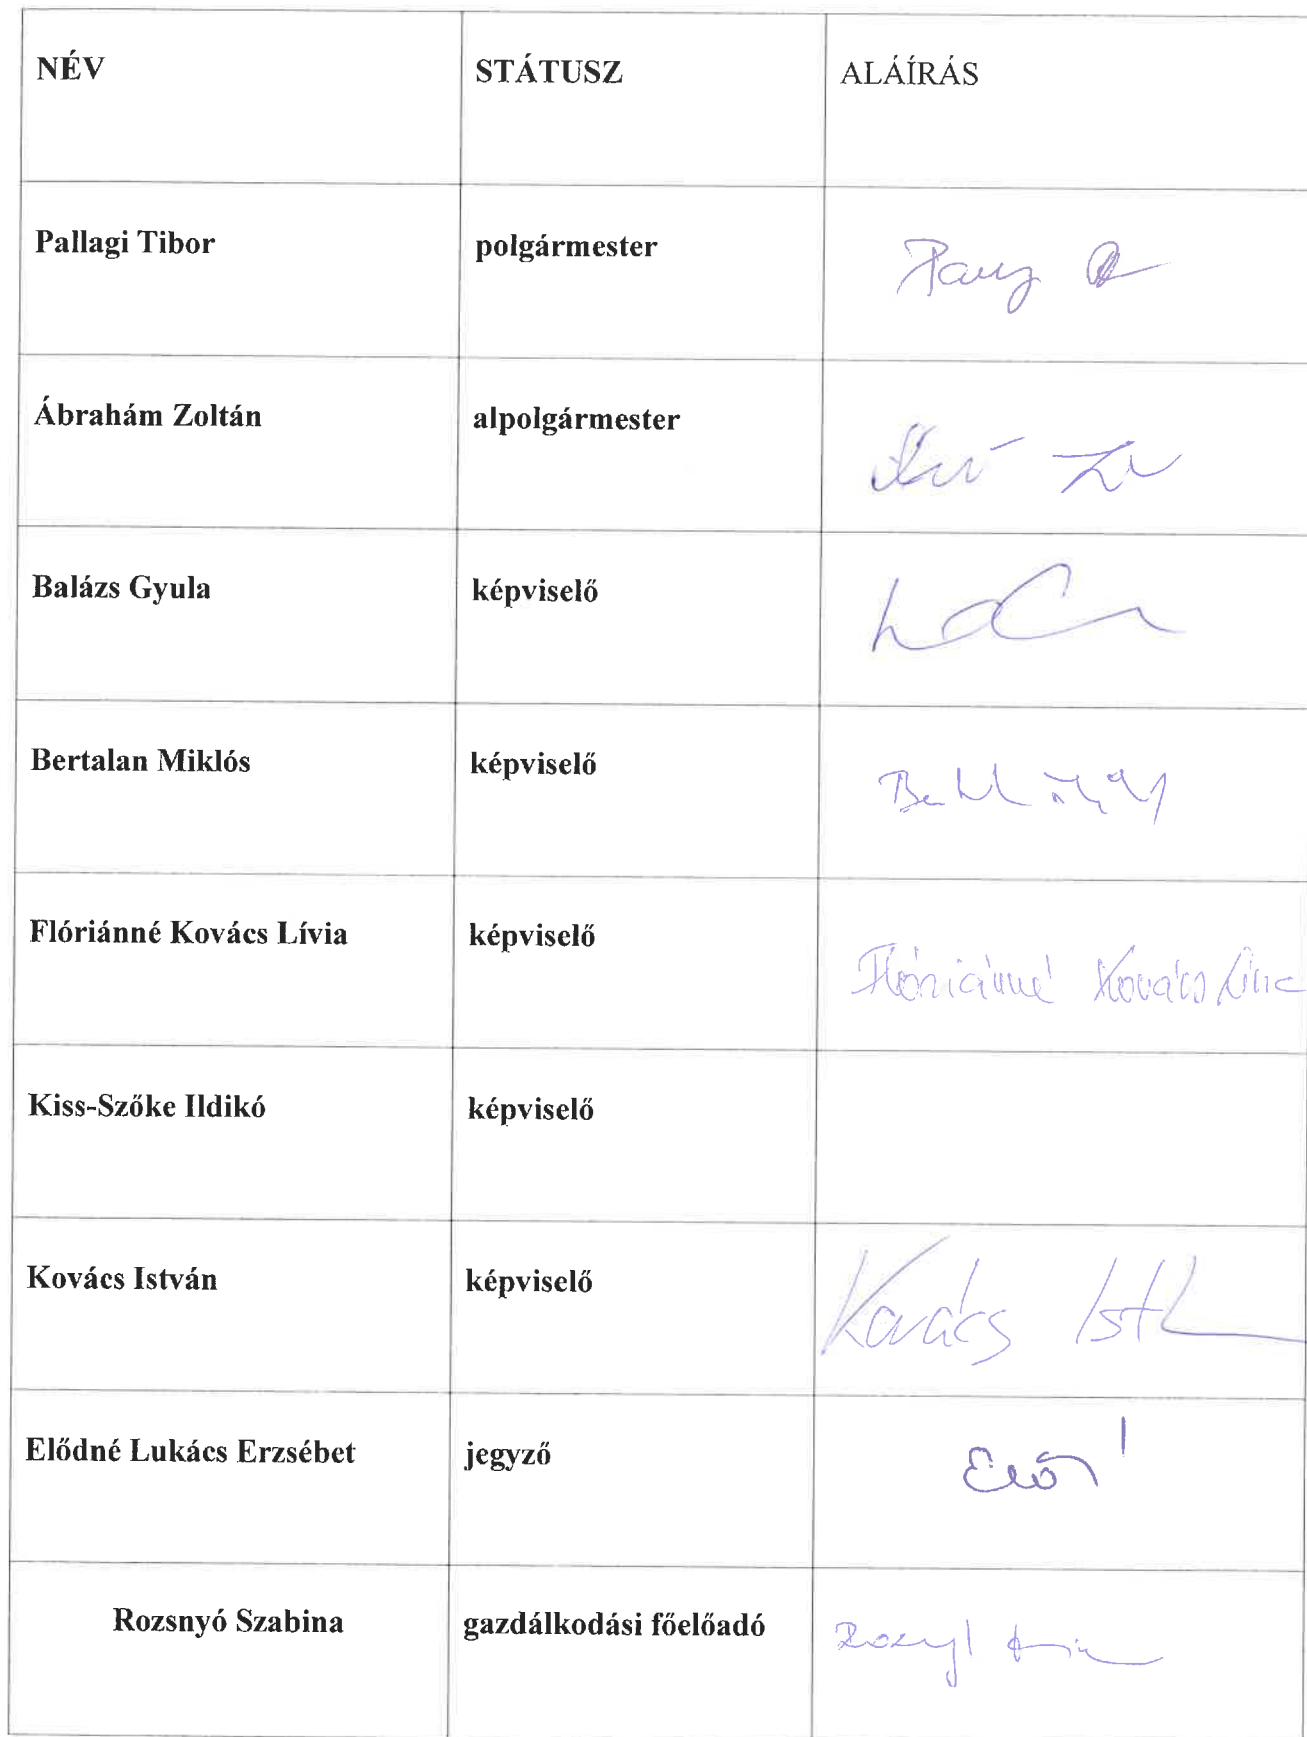 NÉV STÁTUSZ ALÁÍRÁS
Pallagi Tibor polgármester
Ábrahám Zoltán alpolgármester
Balázs Gyula képviselő
Bertalan Miklós képviselő
Flóriánné Kovács Lívia képviselő Flóriánné Kovács
Kiss-Szőke Ildikó képviselő
Kovács István képviselő Kovács
Elődné Lukács Erzsébet jegyző
Rozsnyó Szabina gazdálkodási főelőadó